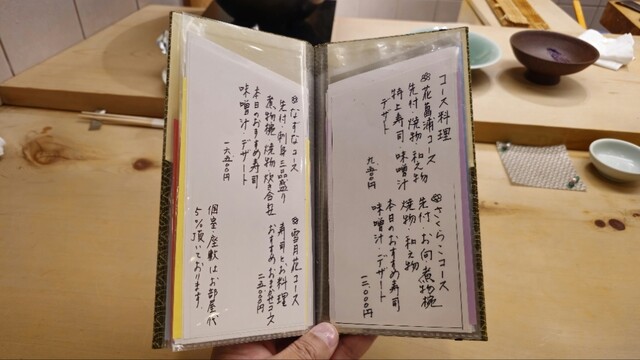 コース料理
花菖蒲コース
先付 焼物 和え物
特上寿司・味噌汁
デザート
九、五〇〇円
さくらこコース
先付 お向 煮物椀
焼物・和え物
本日のおすすめ寿司
味噌汁・デザート
一二、〇〇〇円
なずなコース
先付・刺身三品盛り
煮物椀 焼物 炊き合せ
本日のおすすめ寿司
味噌汁 デザート
一八、五〇〇円
雪月花コース
寿司とお料理
おすすめおまかせコース
二五、〇〇〇円
個室・座敷はお部屋代
5%頂いております